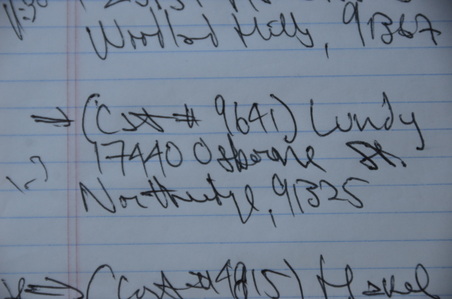 Woodland Hills, 91367
→ (Cst # 9641) Cundy
17440 Osborne St.
Northridge, 91325
(Cst # 4815)